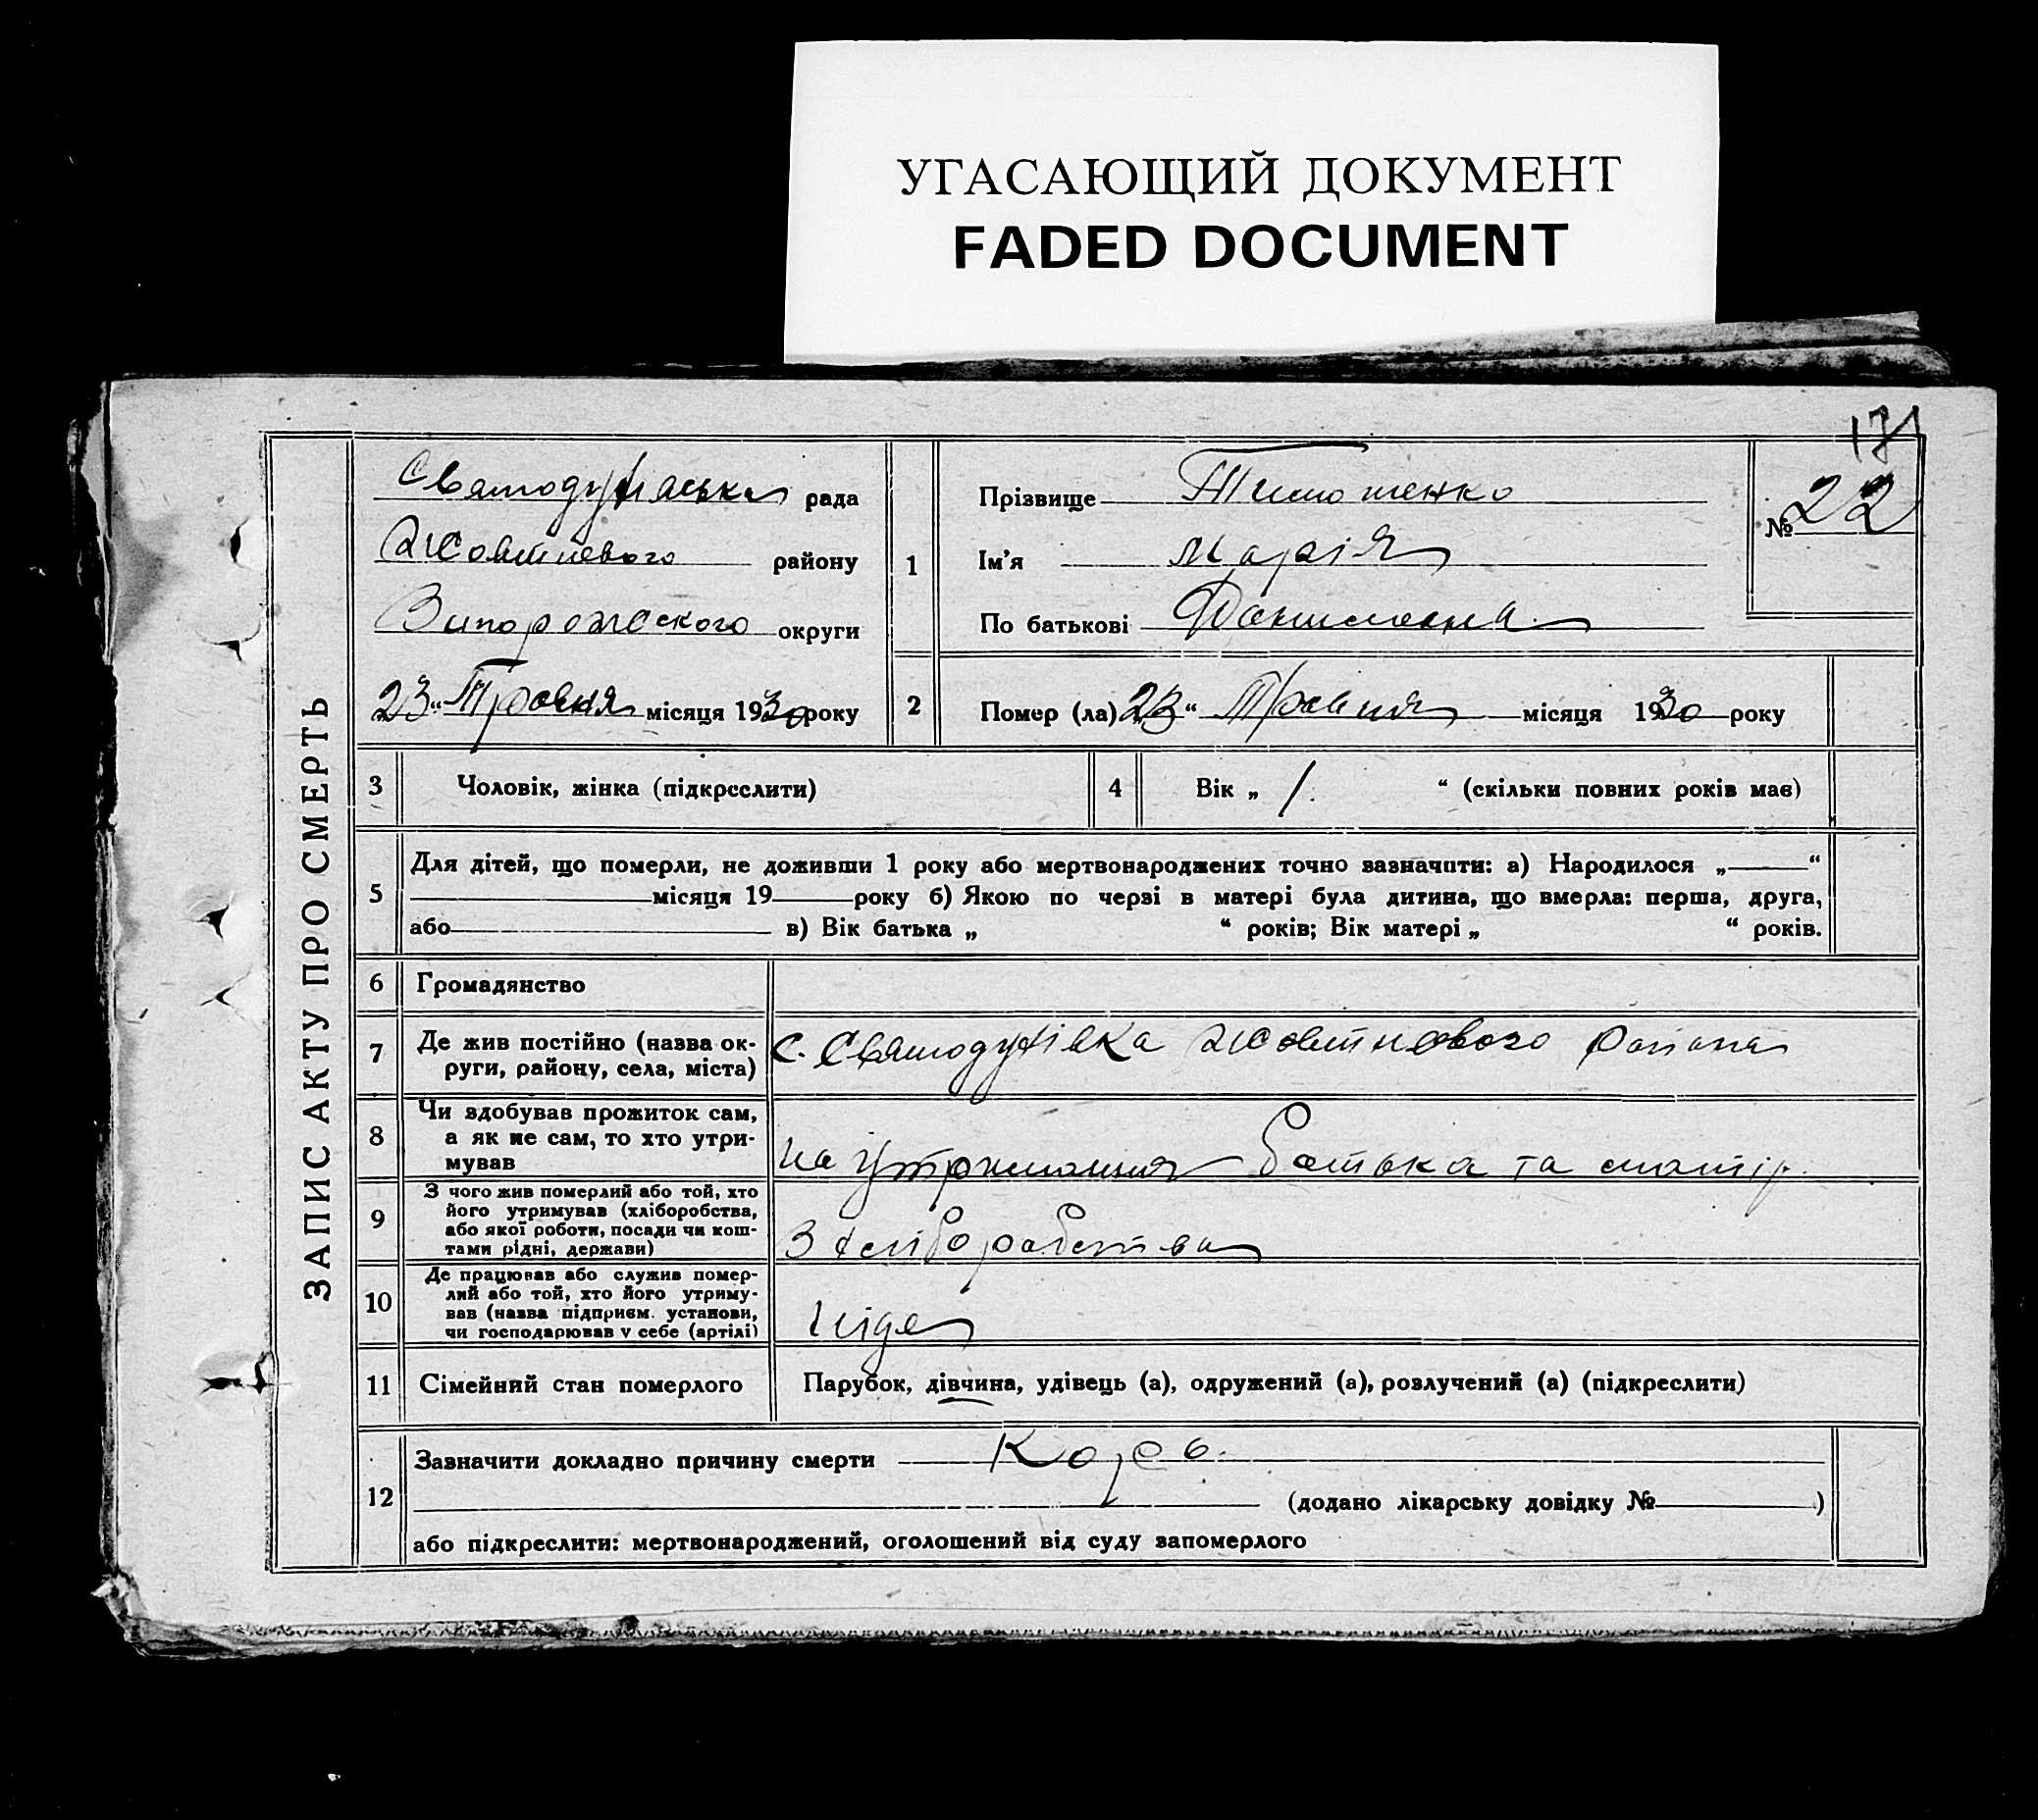 УГАСАЮЩИЙ ДОКУМЕНТ
FADED DOCUMENT
171
ЗАПИС АКТУ ПРО СМЕРТЬ
Святодухівська рада
Жовтневого району
Запорожского округи
23 „ Травня місяця 1930 року
1
Прізвище Тимошенко
Ім'я Марія
По батькові Даниловна
№ 22
2
Помер (ла) 23 “ Травня місяця 1930 року
3 Чоловік, жінка (підкреслити)
4 Вік „ 1. “ (скільки повних років має)
5
Для дітей, що померли, не доживши 1 року або мертвонароджених точно зазначити: а) Народилося „ “
місяця 19 року б) Якою по черзі в матері була дитина, що вмерла: перша, друга,
або в) Вік батька „ “ років; Вік матері „ “ років.
6 Громадянство
7 Де жив постійно (назва ок-
руги, району, села, міста)
с. Святодухівка Жовтневого района
8 Чи здобував прожиток сам,
а як не сам, то хто утри-
мував
на утримання батька та матір.
9 З чого жив померлий або той, хто
його утримував (хліборобства,
або якої роботи, посади чи кош-
тами рідні, держави)
З хліборобства
10 Де працював або служив помер-
лий або той, хто його утриму-
вав (назва підприєм. установи,
чи господарював у себе (артілі)
11 Сімейний стан померлого
Парубок, дівчина, удівець (а), одружений (а), розлучений (а) (підкреслити)
12
Зазначити докладно причину смерти Корь.
(додано лікарську довідку № )
або підкреслити: мертвонароджений, оголошений від суду запомерлого